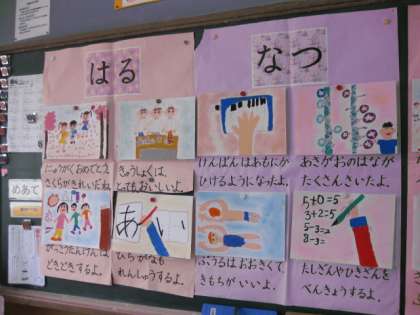 はる
にゅうがくおめでとう
さくらがきれいだね
きゅうしょくは、
とってもおいしいよ。
がっこうたんけんは
どきどきするよ。
あい
ひらがなも
れんしゅうするよ。
なつ
けんばんはあもにか
ひけるようになったよ。
あさがおのはなが
たくさんさいたよ。
ぷうるはおおきくて
きもちがいいよ。
5+0=5
3+2=5
5-3=
8-3=
たしざんやひきざんを
べんきょうするよ。
めあて